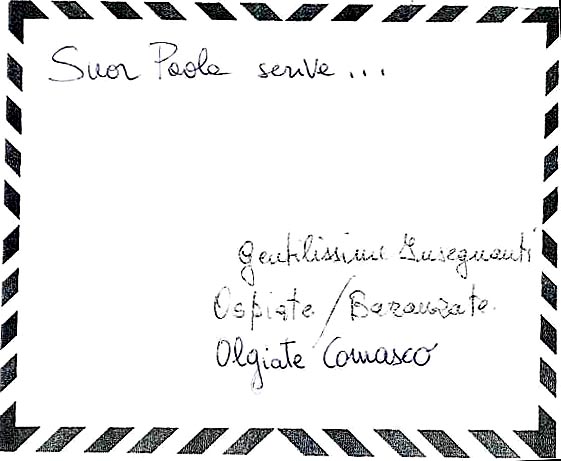 Suor Paola scrive...
Gentilissimi Insegnanti
Ospiate/Baranzate
Olgiate Comasco